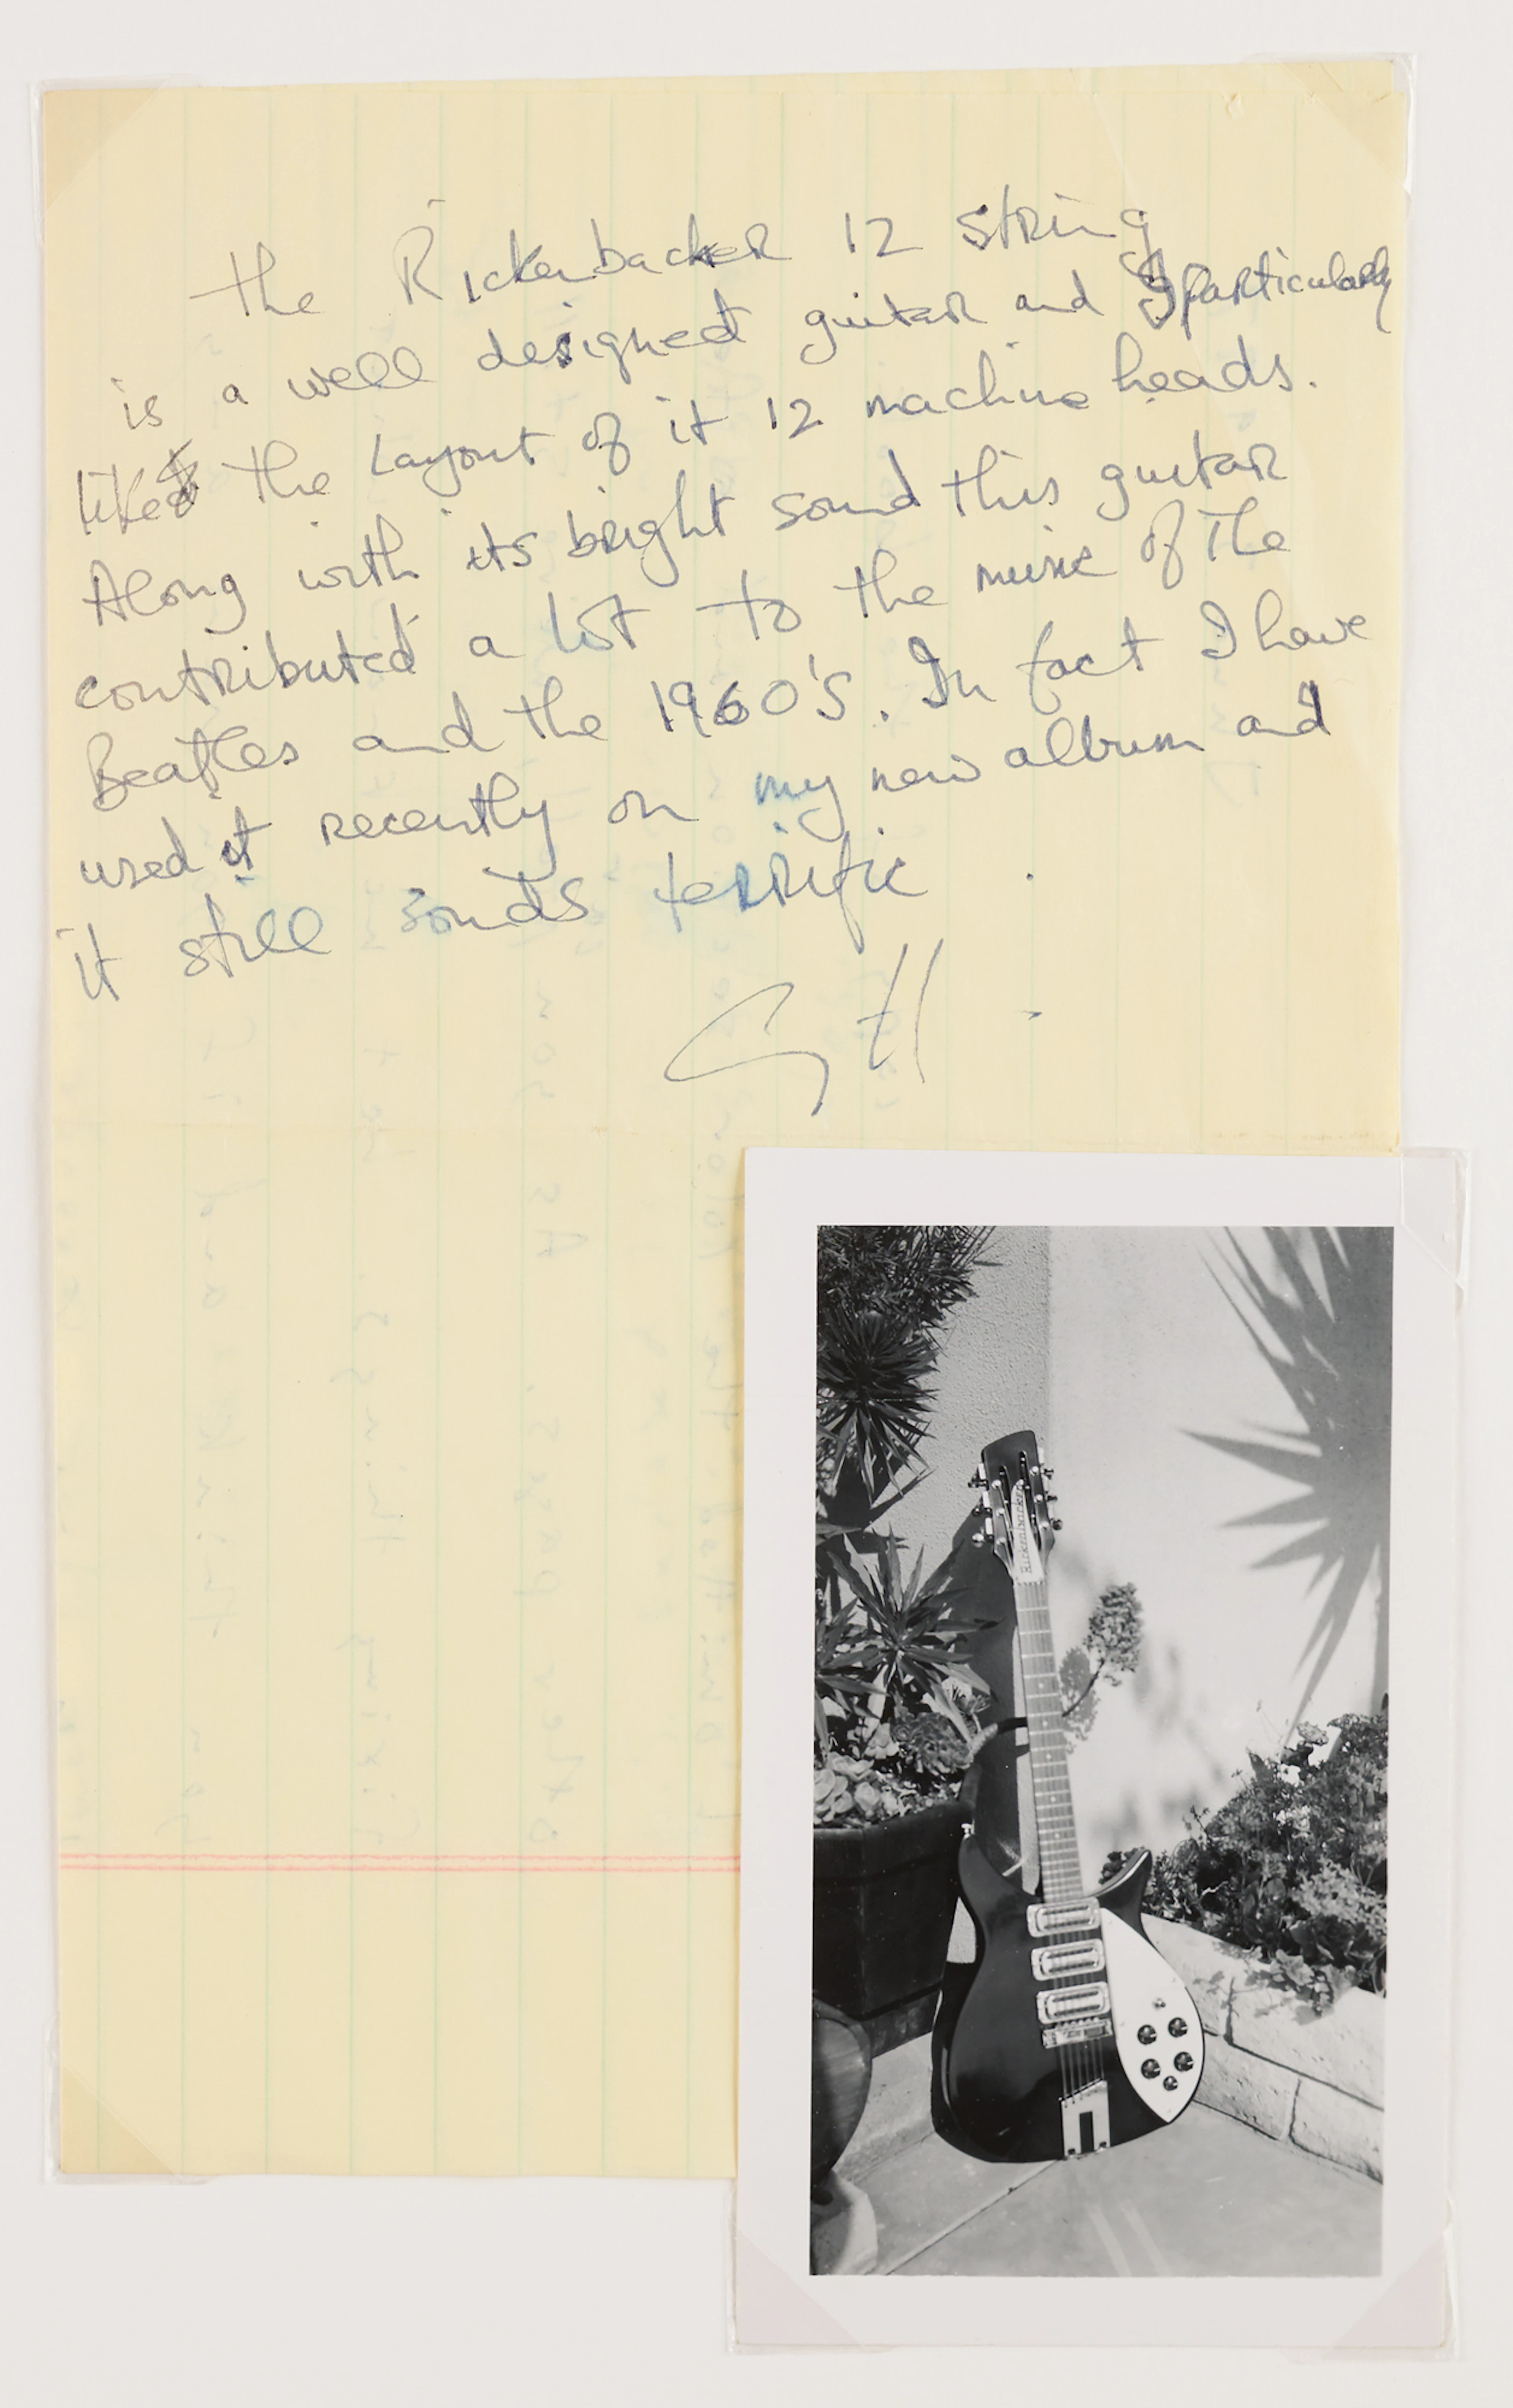 the Rickenbacker 12 string
is a well designed guitar and I particularly
like the layout of it 12 machine heads.
Along with its bright sound this guitar
contributed a lot to the music of the
Beatles and the 1960's. In fact I have
used it recently on my new album and
it still sounds terrific
RICKENBACKER